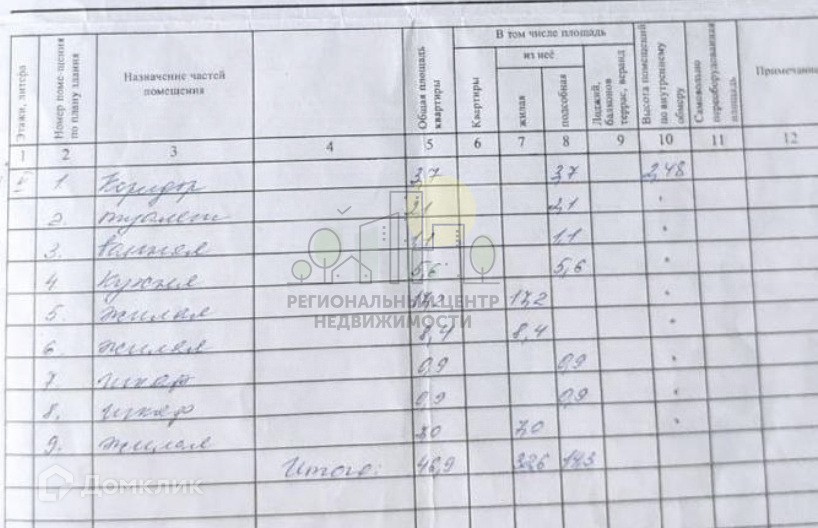 В том числе площадь
из неё
Этажи, литера
Номер помещения по плану здания
Назначение частей помещения
Общая площадь квартиры
Квартиры
жилая
подсобная
Лоджий, балконов террас, веранд
Высота помещений по внутреннему обмеру
Самовольно переоборудованная площадь
Примечание
1 2 3 4 5 6 7 8 9 10 11 12
1. Коридор 3,7 3,7 2,48
2. туалет 2,1 2,1 "
3. ванная 1,1 1,1 "
4. Кухня 5,6 5,6 "
5. жилая 17,2 17,2 "
6. жилая 8,4 8,4 "
7. шкаф 0,9 0,9 "
8. шкаф 0,9 0,9 "
9. жилая 7,0 7,0 "
Итого: 46,9 32,6 14,3
РЕГИОНАЛЬНЫЙ ЦЕНТР
НЕДВИЖИМОСТИ
Домклик